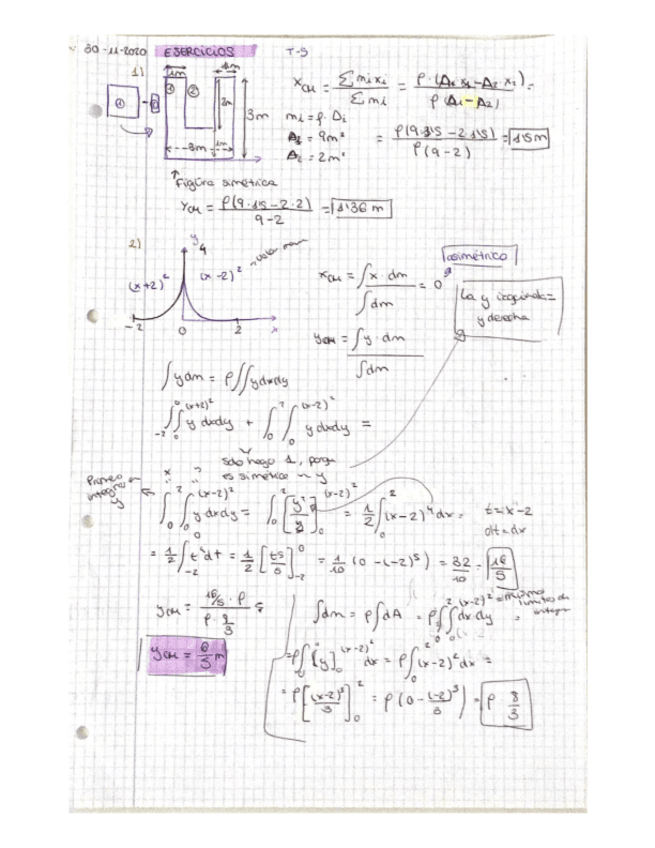 30-11-2020 EJERCICIOS T-5
1)
1m 1m
① - ② ① ② 2m 3m
3m 1m
x_CM = Σ mi xi / Σ mi = ρ·(A₁x₁-A₂·x₂) / ρ(A₁-A₂) =
mi = ρ·Ai
A₁ = 9m²
A₂ = 2m²
= ρ(9·1'5-2·1'5) / ρ(9-2) = 1'5m
Figura simétrica
Y_CM = ρ(9·1'5-2·2) / 9-2 = 1'36 m
2)
y 4
(x+2)² (x-2)²
-2 0 2 x
x_CM = ∫x·dm / ∫dm = 0
y_CM = ∫y·dm / ∫dm
simétrico
La y izquierda =
y derecha
∫ydm = ρ∬ydxdy
∫₋₂⁰∫₀^(x+2)² y dxdy + ∫₀²∫₀^(x-2)² y dxdy =
solo hago 1, porque
es simétrica en y
Primero
integral
y
∫₀²∫₀^(x-2)² y dxdy = ∫₀² [y²/2]₀^(x-2)² = 1/2 ∫₀² (x-2)⁴dx = t=x-2
dt=dx
= 1/2 ∫₋₂ t⁴dt = 1/2 [t5/5]₋₂⁰ = 1/10 (0-(-2)⁵) = 32/10 = 16/5
y_CM = 16/5·ρ / ρ·8/3 =
y_CM = 6/5 m
∫dm = ρ∫dA = ρ∫₀²∫₀^(x-2)² dxdy =
mismo
limites de
integr
= ρ∫[y]₀^(x-2)² dx = ρ∫₀²(x-2)²dx =
= ρ[(x-2)³/3]₀² = ρ(0-(-2)³/3) = ρ·8/3